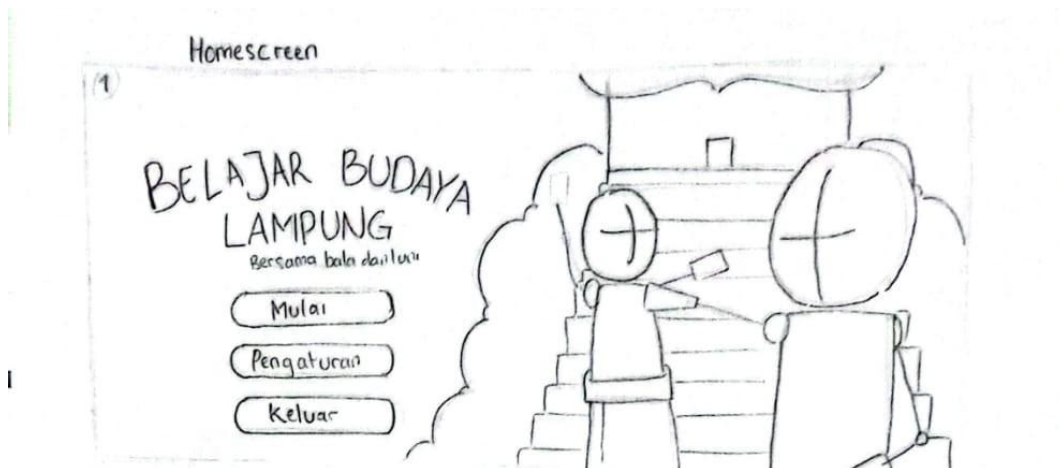 Homescreen
1
BELAJAR BUDAYA
LAMPUNG
Bersama bala dan luni
Mulai
Pengaturan
Keluar